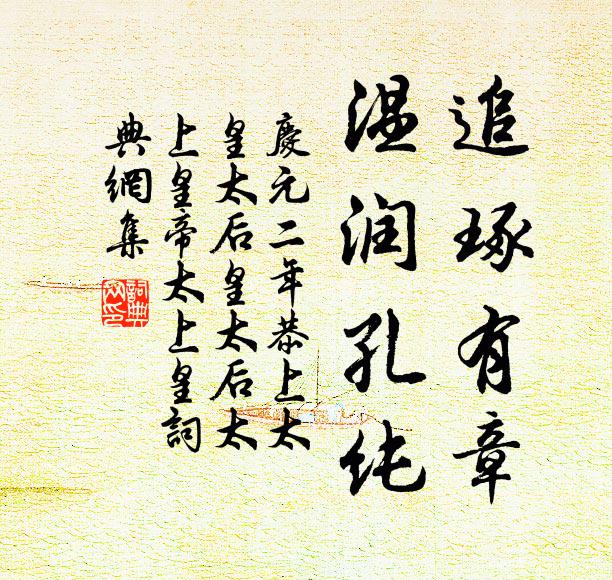 追琢有章
温润孔纯
慶元二年恭上太
皇太后皇太后太
上皇帝太上皇詞
典網集
詞典网印